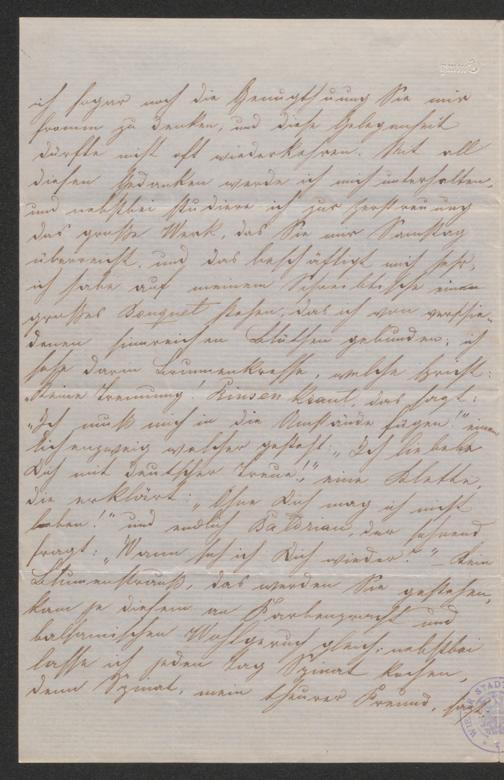 ich sogar noch die Genugthuung Sie mir
fromm zu denken, und diese Gelegenheit
dürfte nicht oft wiederkehren. Mit all
diesen Gedanken werde ich mich unterhalten,
und nebstbei studiere ich zur Zerstreuung
das große Werk, das Sie mir Samstag
überreicht, und das beschäftigt mich sehr,
ich habe auf meinem Schreibtische einen
großes Bouquet stehen, das ich von verschie-
denen sinnreichen Blüthen gebunden; ich
sehe darin Brunnenkresse, welche spricht:
"Keine Trennung! Binsenkraut, das sagt:
"Ich muß mich in die Umstände fügen!" einen
welcher gesteht: "Ich liebe
Dich mit deutscher Treue!," eine Klette,
die erklärt: "Ohne Dich mag ich nicht
leben!" und endlich Baldrian, der sehnend
fragt: "Wann seh ich Dich wieder?" – Kein
Blumenstrauß, das werden Sie gestehen,
kam je diesem an Farbenpracht und
balsamischen Wohlgeruch gleich; nebstbei
lasse ich jeden Tag Spinat kochen,
denn Spinat, mein theurer Freund, sagt: